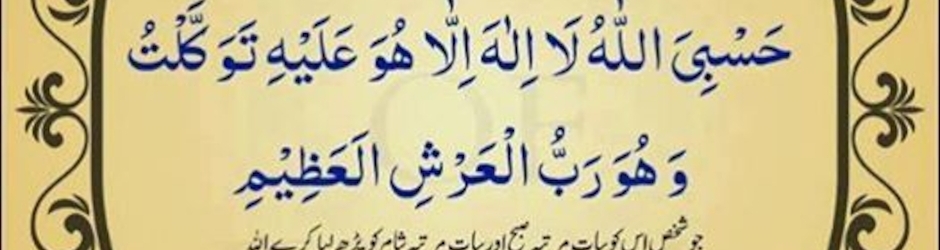 حَسْبِیَ اللّٰهُ لَا اِلٰهَ اِلَّا هُوَ عَلَيْهِ تَوَكَّلْتُ
وَ هُوَ رَبُّ الْعَرْشِ الَعَظِيْمِ
جو شخص اس کو سات مرتبہ صبح اور سات مرتبہ شام کو پڑھ لیا کرے اللہ